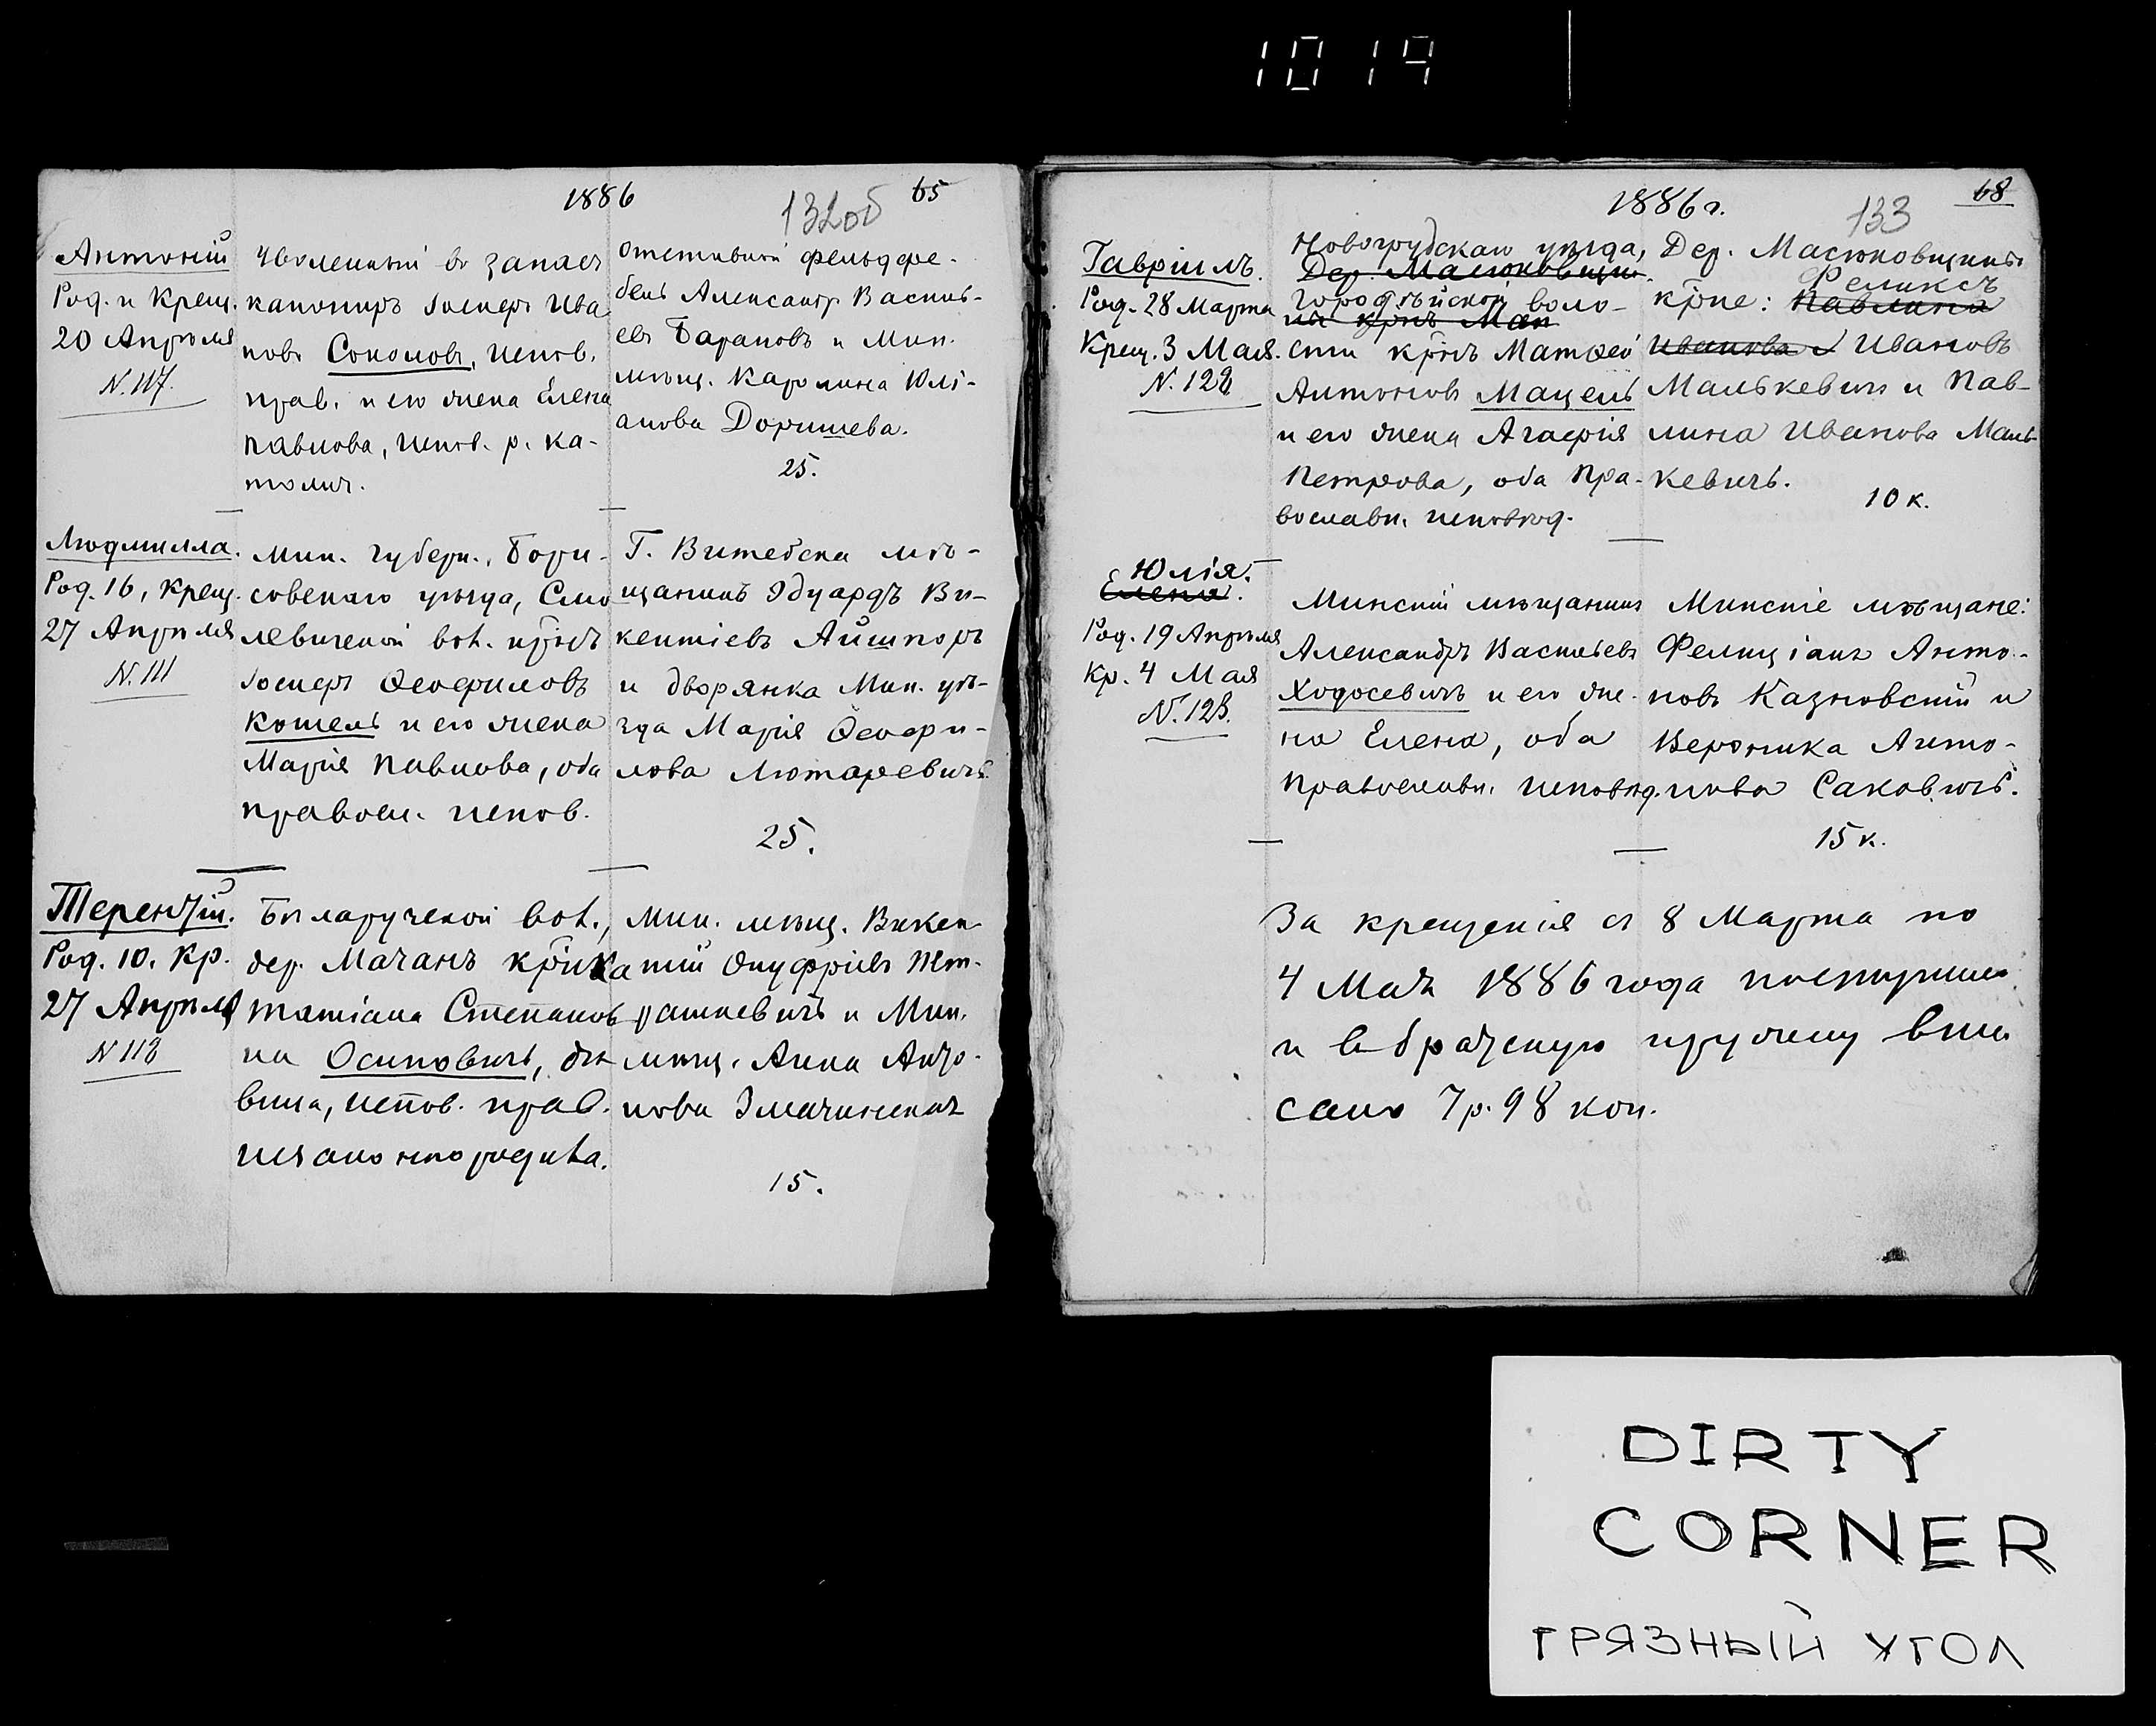 1014
1886
132об
65
Антоній
Род. и Крещ.
20 Апрѣля
N. 117.
Уволенный въ запасъ
канониръ Іосифъ Ива
новъ Соколовъ, испов.
прав. и его жена Елена
Павлова, испов. р. ка-
толич.
отставной фельдфе-
бель Александр Василь-
евъ Барановъ и Мин.
мѣщ. Каролина Юлі-
анова Доришева.
25.
Людмилла.
Род. 16, крещ.
27 Апрѣля
N. 111
Мин. губерн., Бори-
совскаго уѣзда, Смо
левичской вол. крнъ
Іосифъ Ѳеофиловъ
Кошель и его жена
Марія Павлова, оба
правосл. испов.
Г. Витебска мѣ-
щанинъ Эдуардъ Ви-
кентіевъ Айшпоръ
и дворянка Мин. уѣ-
зда Марія Ѳеофи-
лова Лютаревичъ.
25.
Терентій.
Род. 10. Кр.
27 Апрѣля
N 118
Бѣларучской вол.,
дер. Мачанъ крнка
Татіана Степанов
на Осиповичъ, дѣ
вица, испов. прав.
незаконнородила.
Мин. мѣщ. Викен
тій Онуфріевъ Пет-
рашкевичъ и Мин.
мѣщ. Анна Анто-
нова Змачинская
15.
1886 г.
133
68
Гавріилъ.
Род. 28 Марта
Крещ. 3 Мая.
N. 122
Новогрудскаго уѣзда,
Дер. Масюковщин
Городѣйской воло-
ны крнъ Мат
сти крнъ Матѳей
Антоновъ Мацель
и его жена Агафія
Петрова, оба Пра-
вославн. исповѣд.
Дер. Масюковщины
Феликсъ
крне: Павлина
Иванова и Ивановъ
Малькевичъ и Пав-
лина Иванова Маль-
кевичъ.
10 к.
Юлія.
Елена.
Род. 19 Апрѣля
Кр. 4 Мая
N. 123.
Минскій мѣщанинъ
Александръ Васильевъ
Ходосевичъ и его же-
на Елена, оба
Православн. исповѣд.
Минскіе мѣщане:
Фелиціанъ Анто-
новъ Казновскій и
Вероника Анто-
нова Саковичъ.
15 к.
За крещенія съ 8 Марта по
4 Мая 1886 года поступило
и въ братскую кружку впи
сано 7 р. 98 коп.
DIRTY
CORNER
ГРЯЗНЫЙ УГОЛ